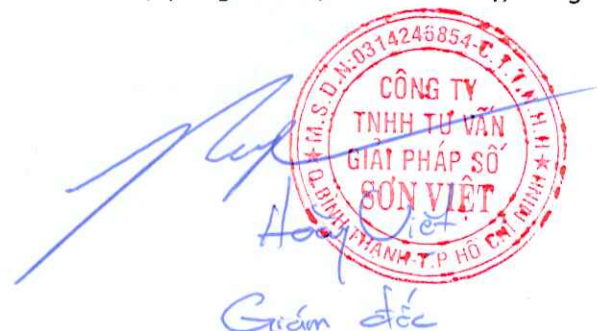 M.S.D.N:0314246854-C.T.T.N.H.H
CÔNG TY
TNHH TƯ VẤN
GIẢI PHÁP SỐ
SƠN VIỆT
Q.BÌNH THẠNH-T.P HỒ CHÍ MINH
Việt
Giám đốc